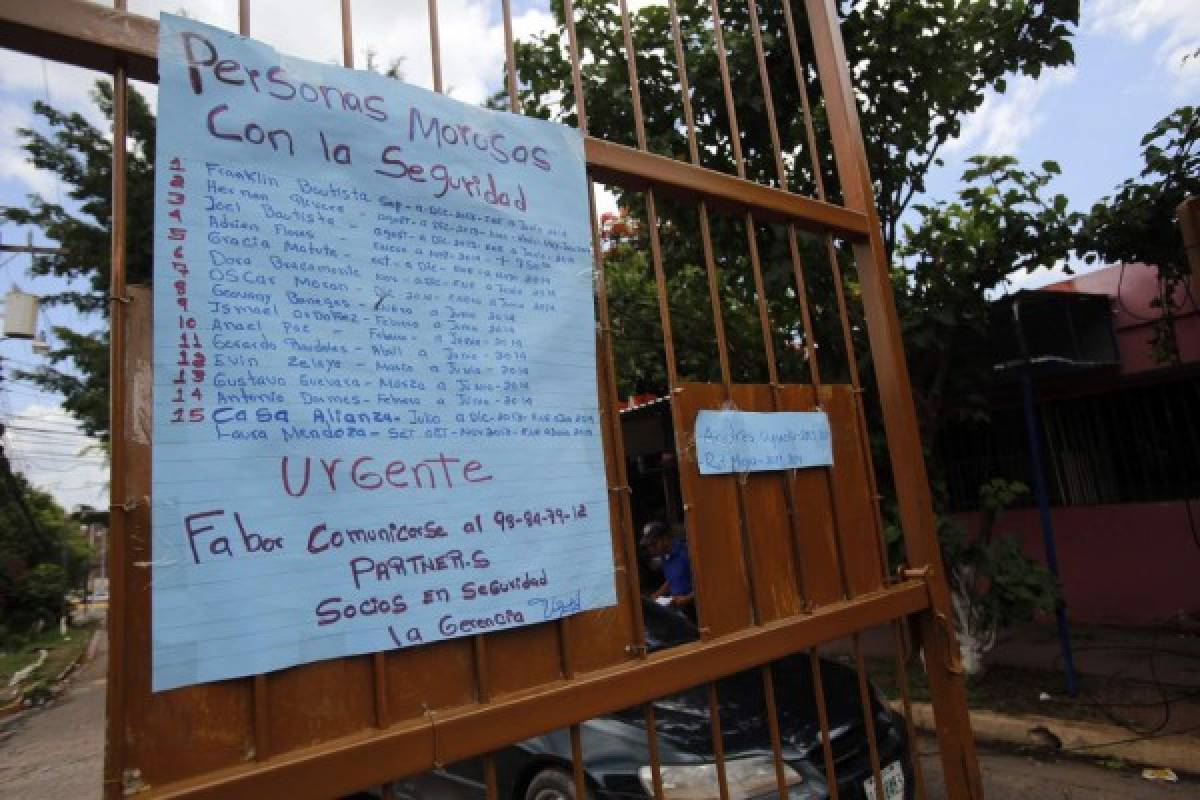 Personas Morosas
Con la Seguridad
1 Franklin Bautista Sep - a Dic - 2013 - a Junio 2014
2 Herman - agost - a Dic - 2013
3 Joel Bautista - agost - a Dic - 2013 - a Junio 2014
4 Adrian Flores - Enero a
5 Gracia Matute - oct - a Dic - Ene - a 2014
6 Dora Bradamonte Nov - a Dic - Ene a Junio 2014
7 OSCar Moran - Dic - 2013 - Enero a Junio 2014
8 Geovany Banegas - Enero a Junio 2014
9 Ismael Ordoñez - Febrero a Junio 2014
10 Anael Paz - Febrero a Junio - 2014
11 Gerardo - Abril a Junio - 2014
12 Evin Zelaya - Marzo a Junio - 2014
13 Gustavo Guevara - Marzo a Junio - 2014
14 Antonio - Febrero a Junio - 2014
15 Casa Alianza - Julio a Dic - 2013 - Ene a Junio 2014
Laura Mendoza - Set oct - Nov 2013 - Ene a Junio 2014
Urgente
Fabor Comunicarse al 98-84-79-12
PARTNER.S
Socios en Seguridad
la Gerencia
Andres